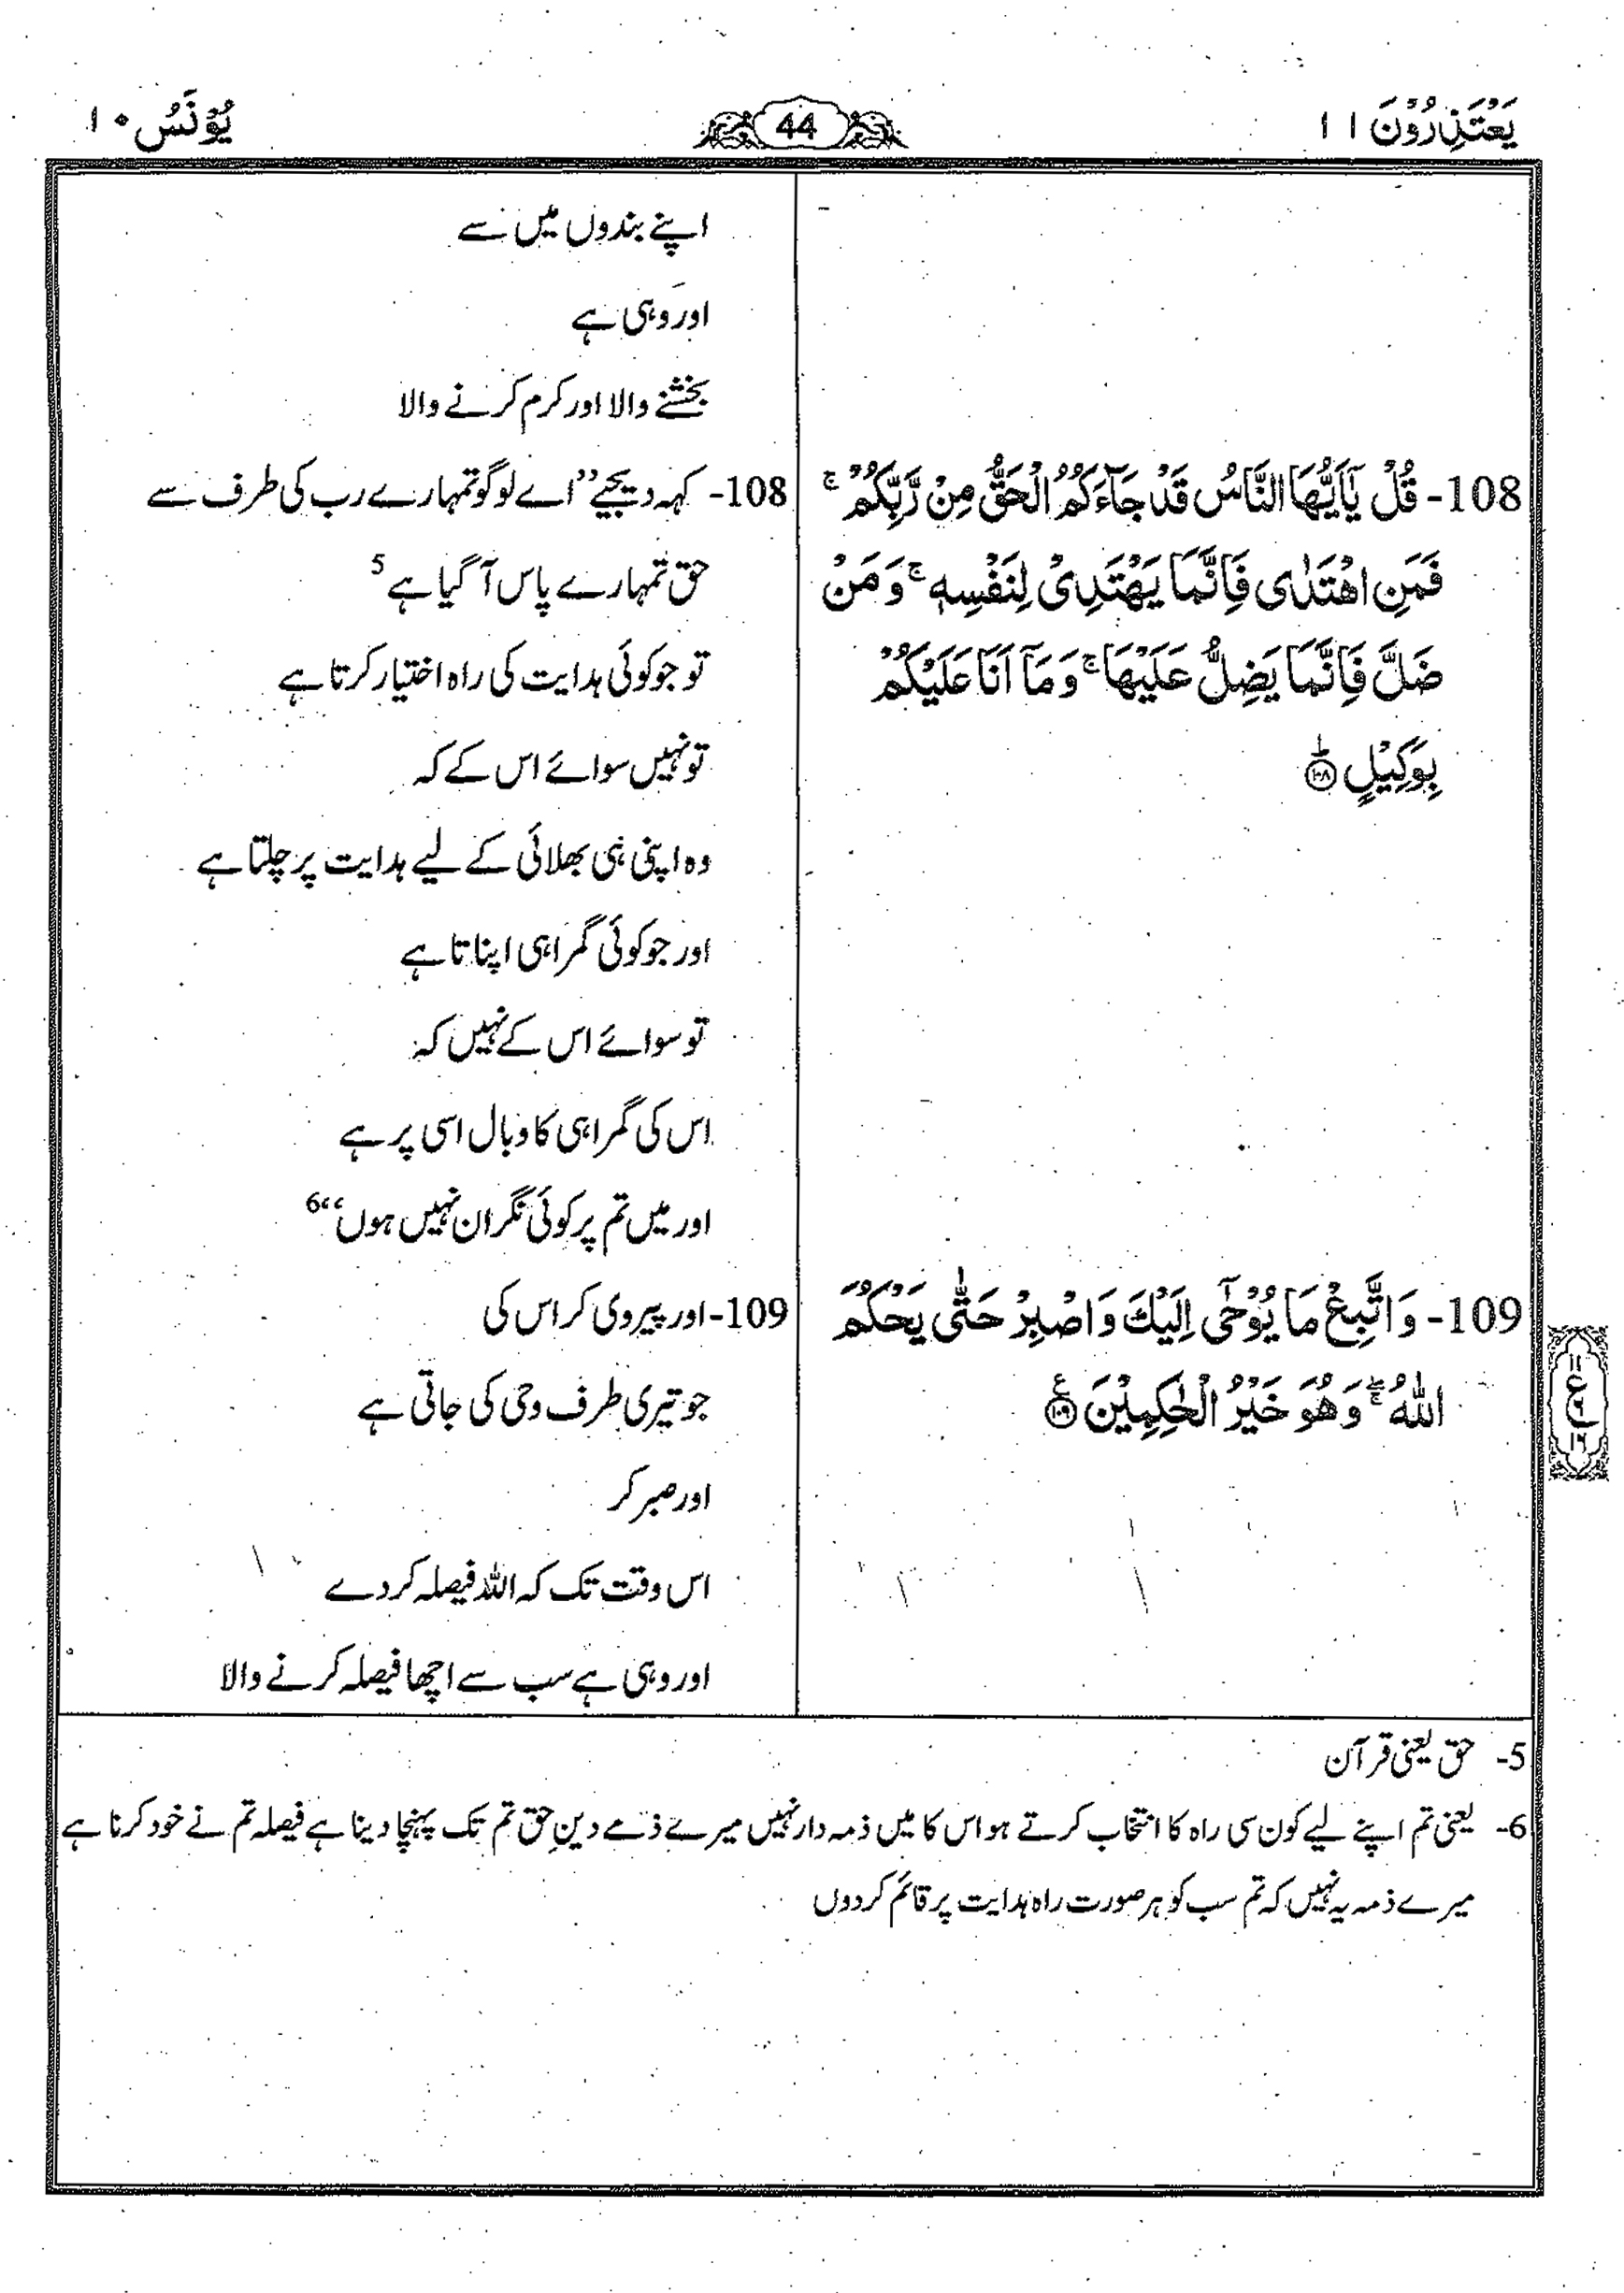 یَعْتَذِرُوْنَ ۱۱
44
یُوْنُس ۱۰
اپنے بندوں میں سے
اور وہی ہے
بخشنے والا اور کرم کرنے والا
108- قُلْ یٰۤاَیُّهَا النَّاسُ قَدْ جَآءَكُمُ الْحَقُّ مِنْ رَّبِّكُمْ ۚ
فَمَنِ اهْتَدٰی فَاِنَّمَا یَهْتَدِیْ لِنَفْسِهٖ ۚ وَ مَنْ
ضَلَّ فَاِنَّمَا یَضِلُّ عَلَیْهَا ۚ وَ مَاۤ اَنَا عَلَیْكُمْ
بِوَكِیْلٍ ؕ ۱۰۸
108- کہہ دیجیے ”اے لوگو تمہارے رب کی طرف سے
حق تمہارے پاس آ گیا ہے 5
تو جو کوئی ہدایت کی راہ اختیار کرتا ہے
تو نہیں سوائے اس کے کہ
وہ اپنی ہی بھلائی کے لیے ہدایت پر چلتا ہے
اور جو کوئی گمراہی اپناتا ہے
تو سوائے اس کے نہیں کہ
اس کی گمراہی کا وبال اسی پر ہے
اور میں تم پر کوئی نگران نہیں ہوں“ 6
109- وَ اتَّبِعْ مَا یُوْحٰۤی اِلَیْكَ وَ اصْبِرْ حَتّٰی یَحْكُمَ
اللّٰهُ ۚۖ وَ هُوَ خَیْرُ الْحٰكِمِیْنَ ۱۰۹ ع
109- اور پیروی کر اس کی
جو تیری طرف وحی کی جاتی ہے
اور صبر کر
اس وقت تک کہ اللہ فیصلہ کر دے
اور وہی ہے سب سے اچھا فیصلہ کرنے والا
5- حق یعنی قرآن
6- یعنی تم اپنے لیے کون سی راہ کا انتخاب کرتے ہو اس کا میں ذمہ دار نہیں میرے ذمے دینِ حق تم تک پہنچا دینا ہے فیصلہ تم نے خود کرنا ہے
میرے ذمہ یہ نہیں کہ تم سب کو ہر صورت راہ ہدایت پر قائم کر دوں